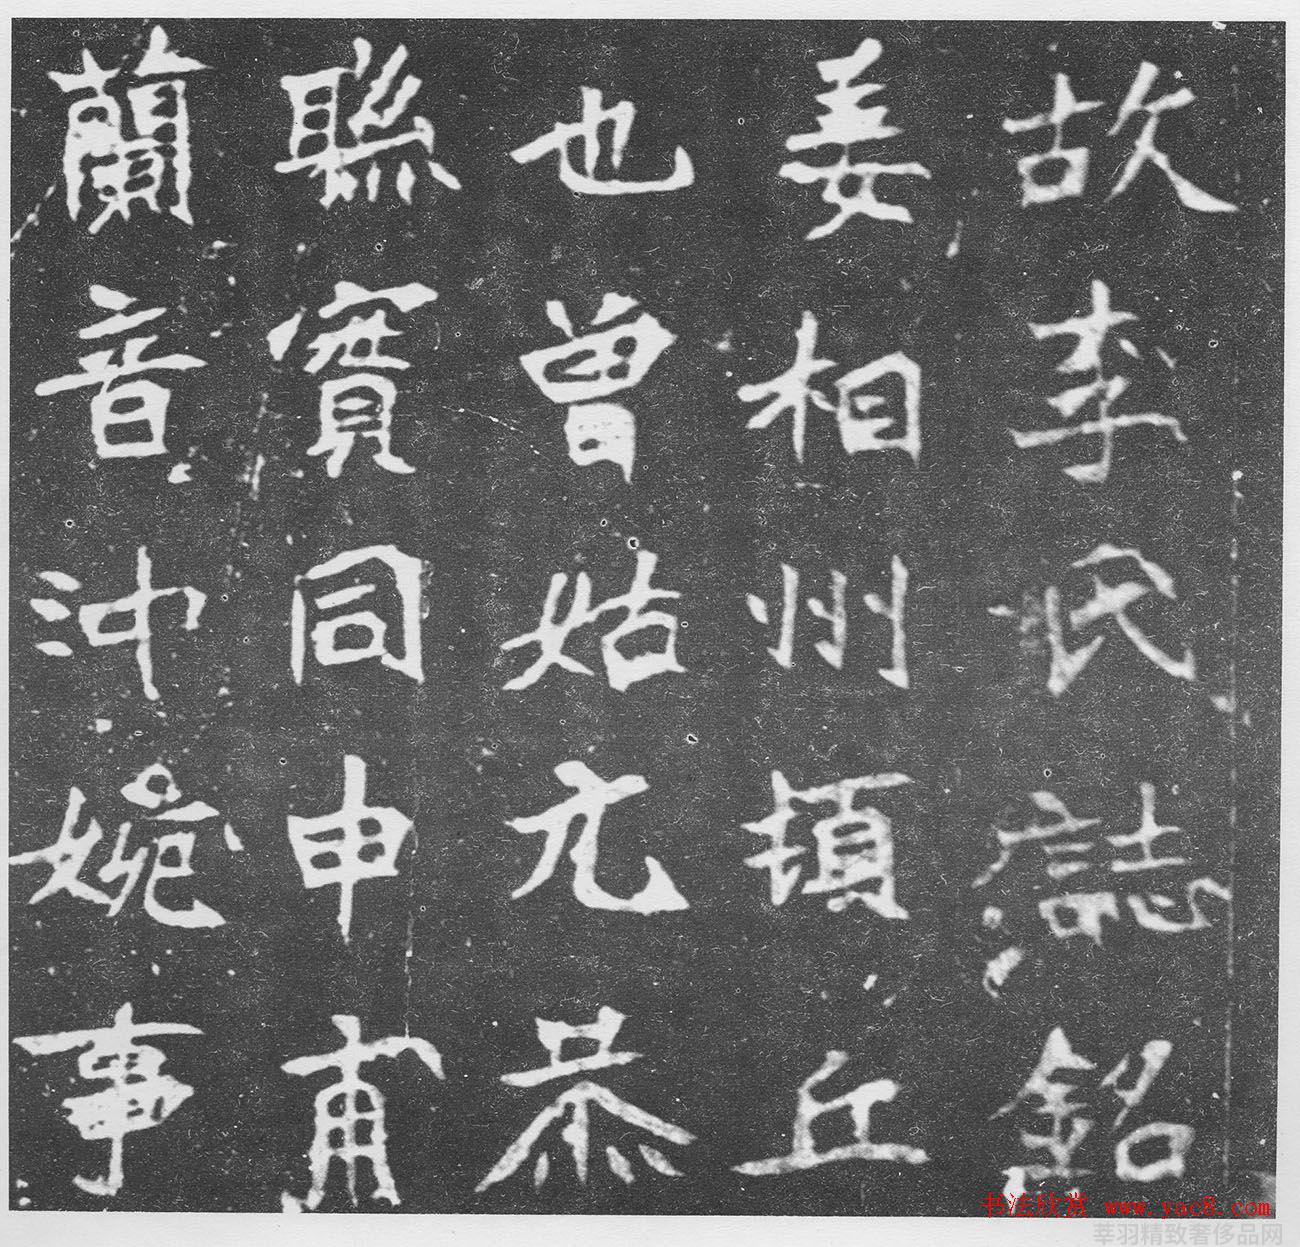 故李氏誌銘
姜相州頓丘
也曾姑亢恭
聯賓同申甫
蘭音沖婉事
书法欣赏 www.yac8.com
莘羽精致奢侈品网